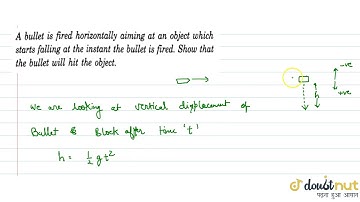 A bullet is fired horizontally aiming at an object which
starts falling at the instant the bullet is fired. Show that
the bullet will hit the object.
-ve
h
+ve
we are looking at vertical displacement of
Bullet & Block after time 't'
h = 1/2 gt²
doubtnut
पढ़ना हुआ आसान